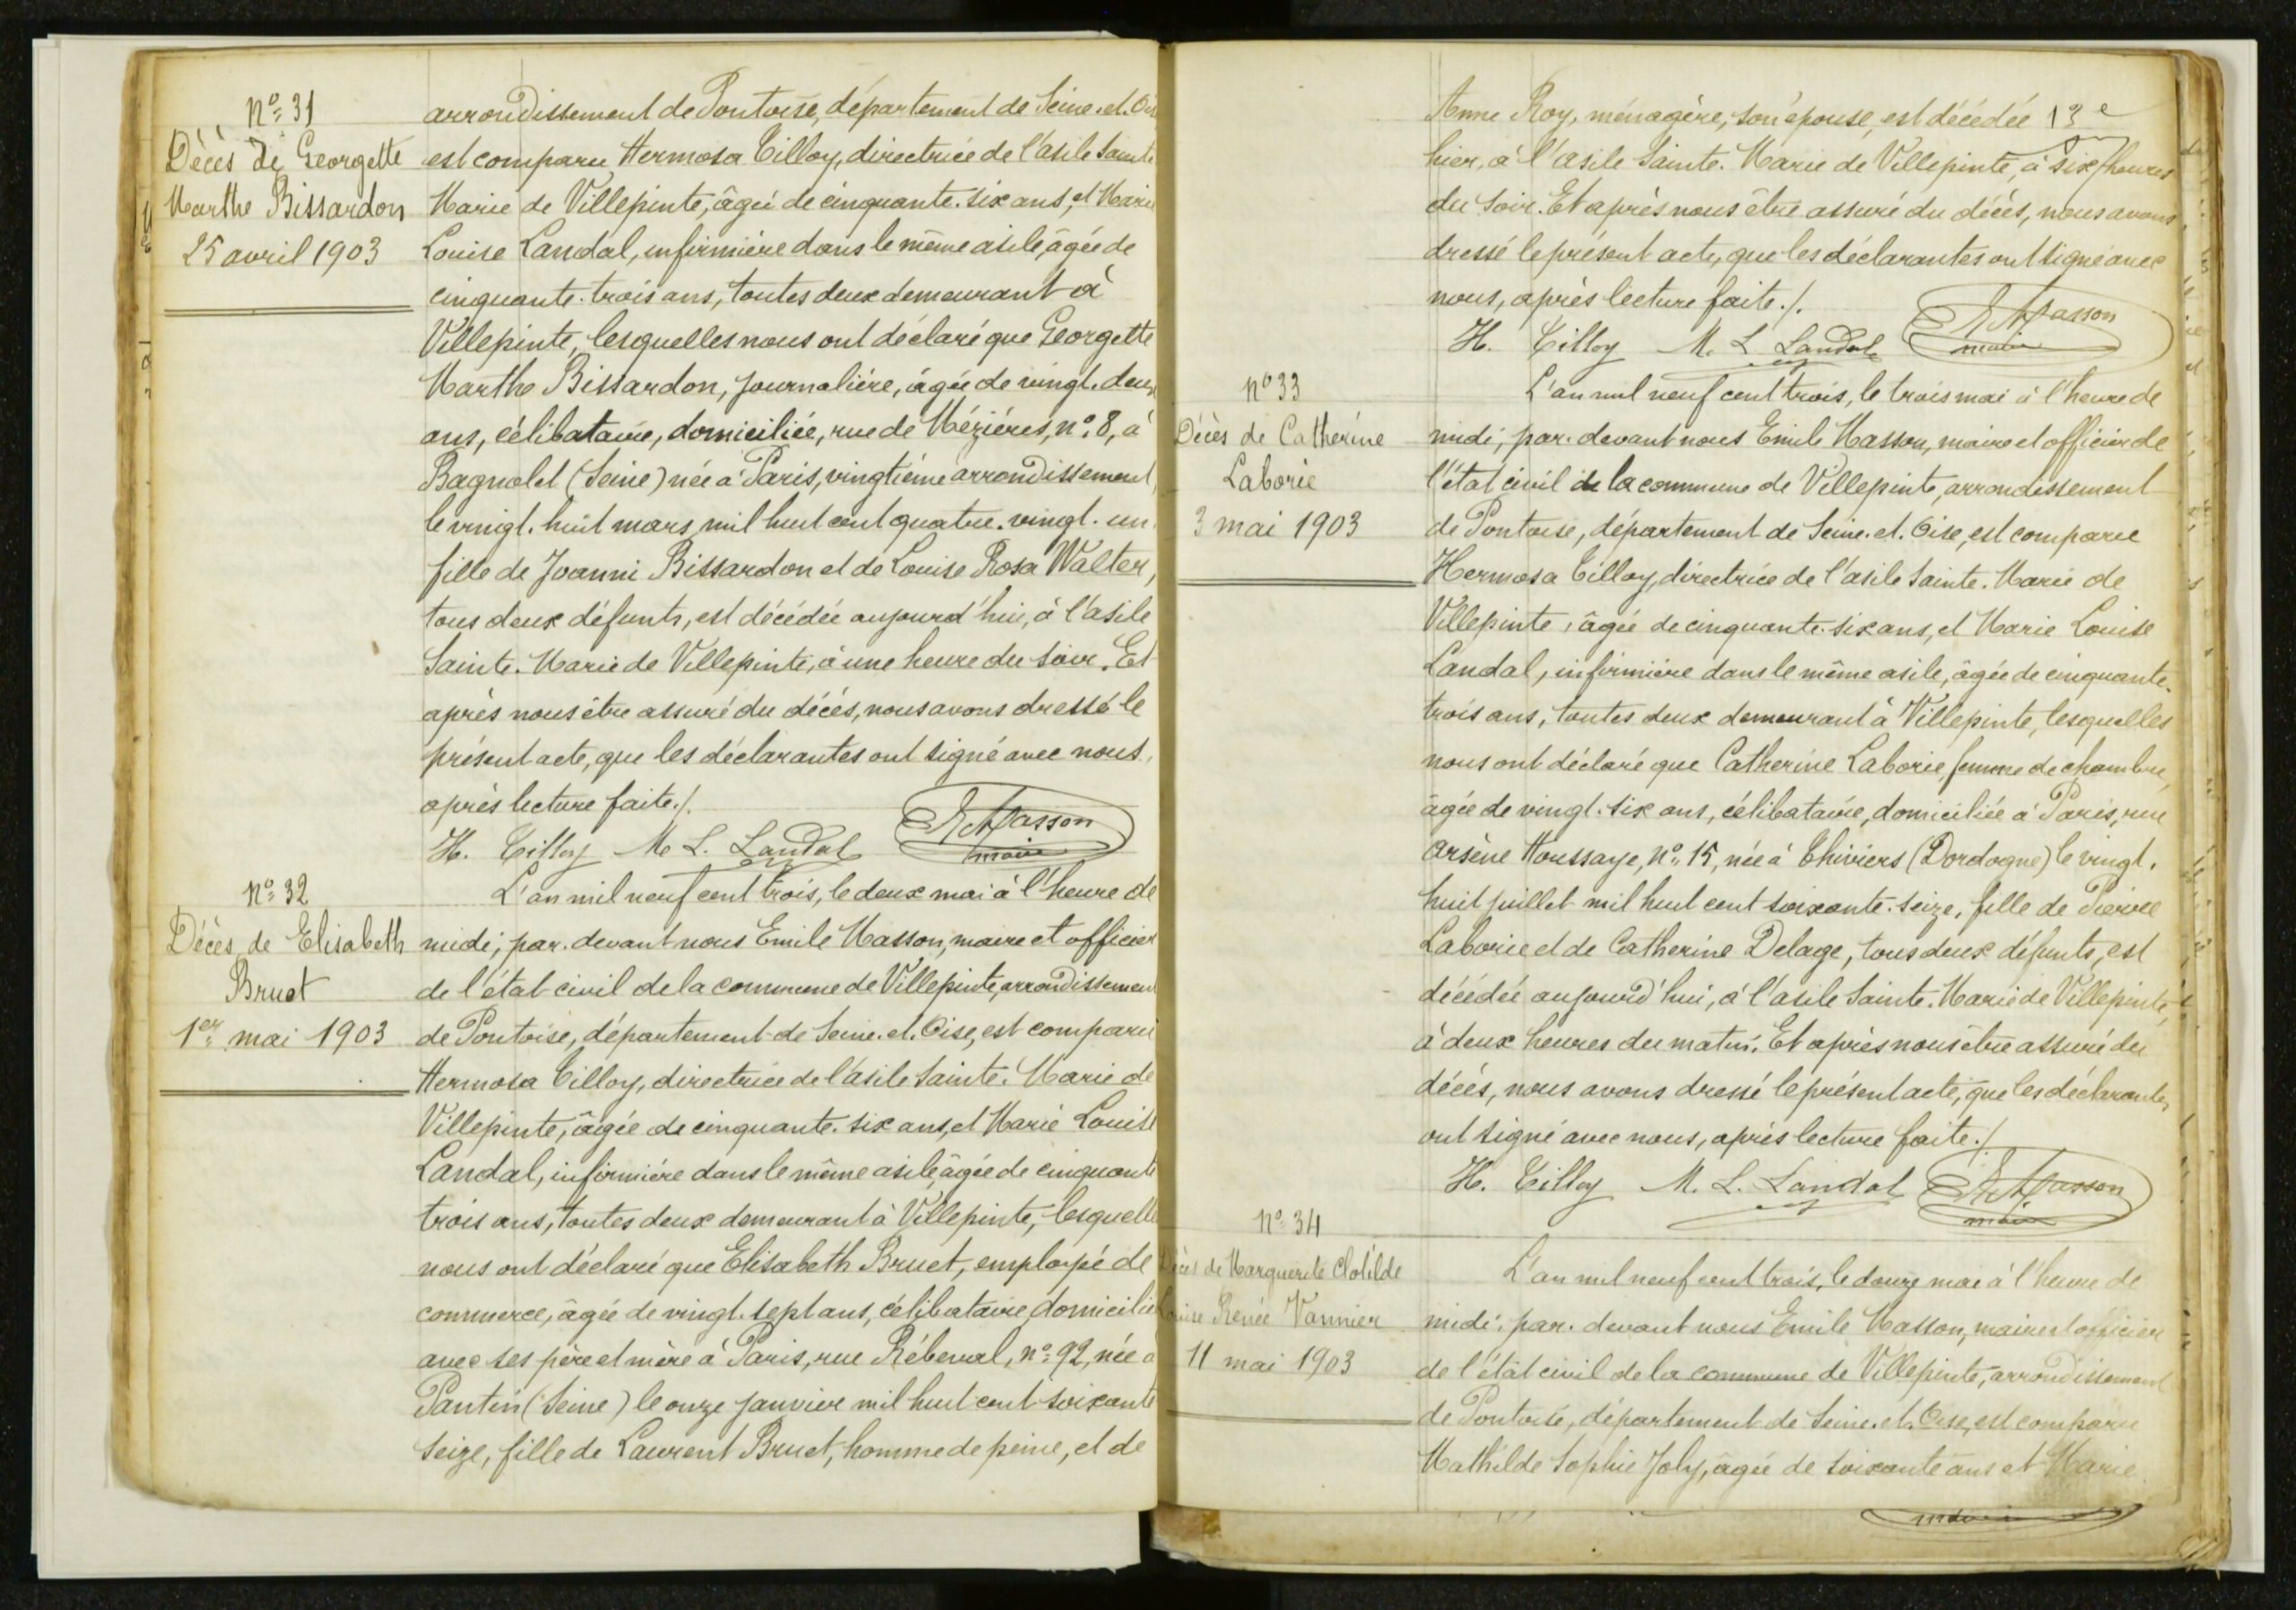 Nº 31
Décès de Georgette
Marthe Bissardon
25 avril 1903
arrondissement de Pontoise, département de Seine-et-Oise
est comparu Hermosa Tilloy, directrice de l'asile Sainte
Marie de Villepinte, âgée de cinquante-six ans, et Marie
Louise Landal, infirmière dans le même asile, âgée de
cinquante-trois ans, toutes deux demeurant à
Villepinte, lesquelles nous ont déclaré que Georgette
Marthe Bissardon, journalière, âgée de vingt-deux
ans, célibataire, domiciliée, rue de Mézières, nº 8, à
Bagnolet (Seine) née à Paris, vingtième arrondissement,
le vingt-huit mars mil huit cent quatre-vingt-un
fille de Joanni Bissardon et de Louise Rosa Walter,
tous deux défunts, est décédée aujourd'hui, à l'asile
Sainte-Marie de Villepinte, à une heure du soir. Et
après nous être assuré du décès, nous avons dressé le
présent acte, que les déclarantes ont signé avec nous,
après lecture faite./.
H. Tilloy M. L. Landal E. Masson
maire
Nº 32
Décès de Elisabeth
Bruet
1er mai 1903
L'an mil neuf cent trois, le deux mai à l'heure de
midi, par-devant nous Emile Masson, maire et officier
de l'état civil de la commune de Villepinte, arrondissement
de Pontoise, département de Seine-et-Oise, est comparu
Hermosa Tilloy, directrice de l'asile Sainte-Marie de
Villepinte, âgée de cinquante-six ans, et Marie Louise
Landal, infirmière dans le même asile, âgée de cinquante
trois ans, toutes deux demeurant à Villepinte, lesquelles
nous ont déclaré que Elisabeth Bruet, employée de
commerce, âgée de vingt-sept ans, célibataire domiciliée
avec ses père et mère à Paris, rue Rébeval, nº 92, née à
Pantin (Seine) le onze janvier mil huit cent soixante
seize, fille de Laurent Bruet, homme de peine, et de
Anne Roy, ménagère, son épouse, est décédée 13e
hier, à l'asile Sainte-Marie de Villepinte, à six heures
du soir. Et après nous être assuré du décès, nous avons
dressé le présent acte, que les déclarantes ont signé avec
nous, après lecture faite./.
H. Tilloy M. L. Landal E. Masson
maire
nº 33
Décès de Catherine
Laborie
3 mai 1903
L'an mil neuf cent trois, le trois mai à l'heure de
midi, par-devant nous Emile Masson, maire et officier de
l'état civil de la commune de Villepinte, arrondissement
de Pontoise, département de Seine-et-Oise, est comparu
Hermosa Tilloy, directrice de l'asile Sainte-Marie de
Villepinte, âgée de cinquante-six ans, et Marie Louise
Landal, infirmière dans le même asile, âgée de cinquante-
trois ans, toutes deux demeurant à Villepinte, lesquelles
nous ont déclaré que Catherine Laborie, femme de chambre,
âgée de vingt-six ans, célibataire, domiciliée à Paris, rue
Arsène Houssaye, Nº 15, née à Thiviers (Dordogne) le vingt-
huit juillet mil huit cent soixante-seize, fille de Pierre
Laborie et de Catherine Delage, tous deux défunts, est
décédée aujourd'hui, à l'asile Sainte-Marie de Villepinte,
à deux heures du matin. Et après nous être assuré du
décès, nous avons dressé le présent acte, que les déclarantes
ont signé avec nous, après lecture faite./.
H. Tilloy M. L. Landal E. Masson
maire
Nº 34
Décès de Marguerite Clotilde
Louise Renée Vannier
11 mai 1903
L'an mil neuf cent trois, le douze mai à l'heure de
midi, par-devant nous Emile Masson, maire et officier
de l'état civil de la commune de Villepinte, arrondissement
de Pontoise, département de Seine-et-Oise, est comparu
Mathilde Sophie Joly, âgée de soixante ans et Marie
maire